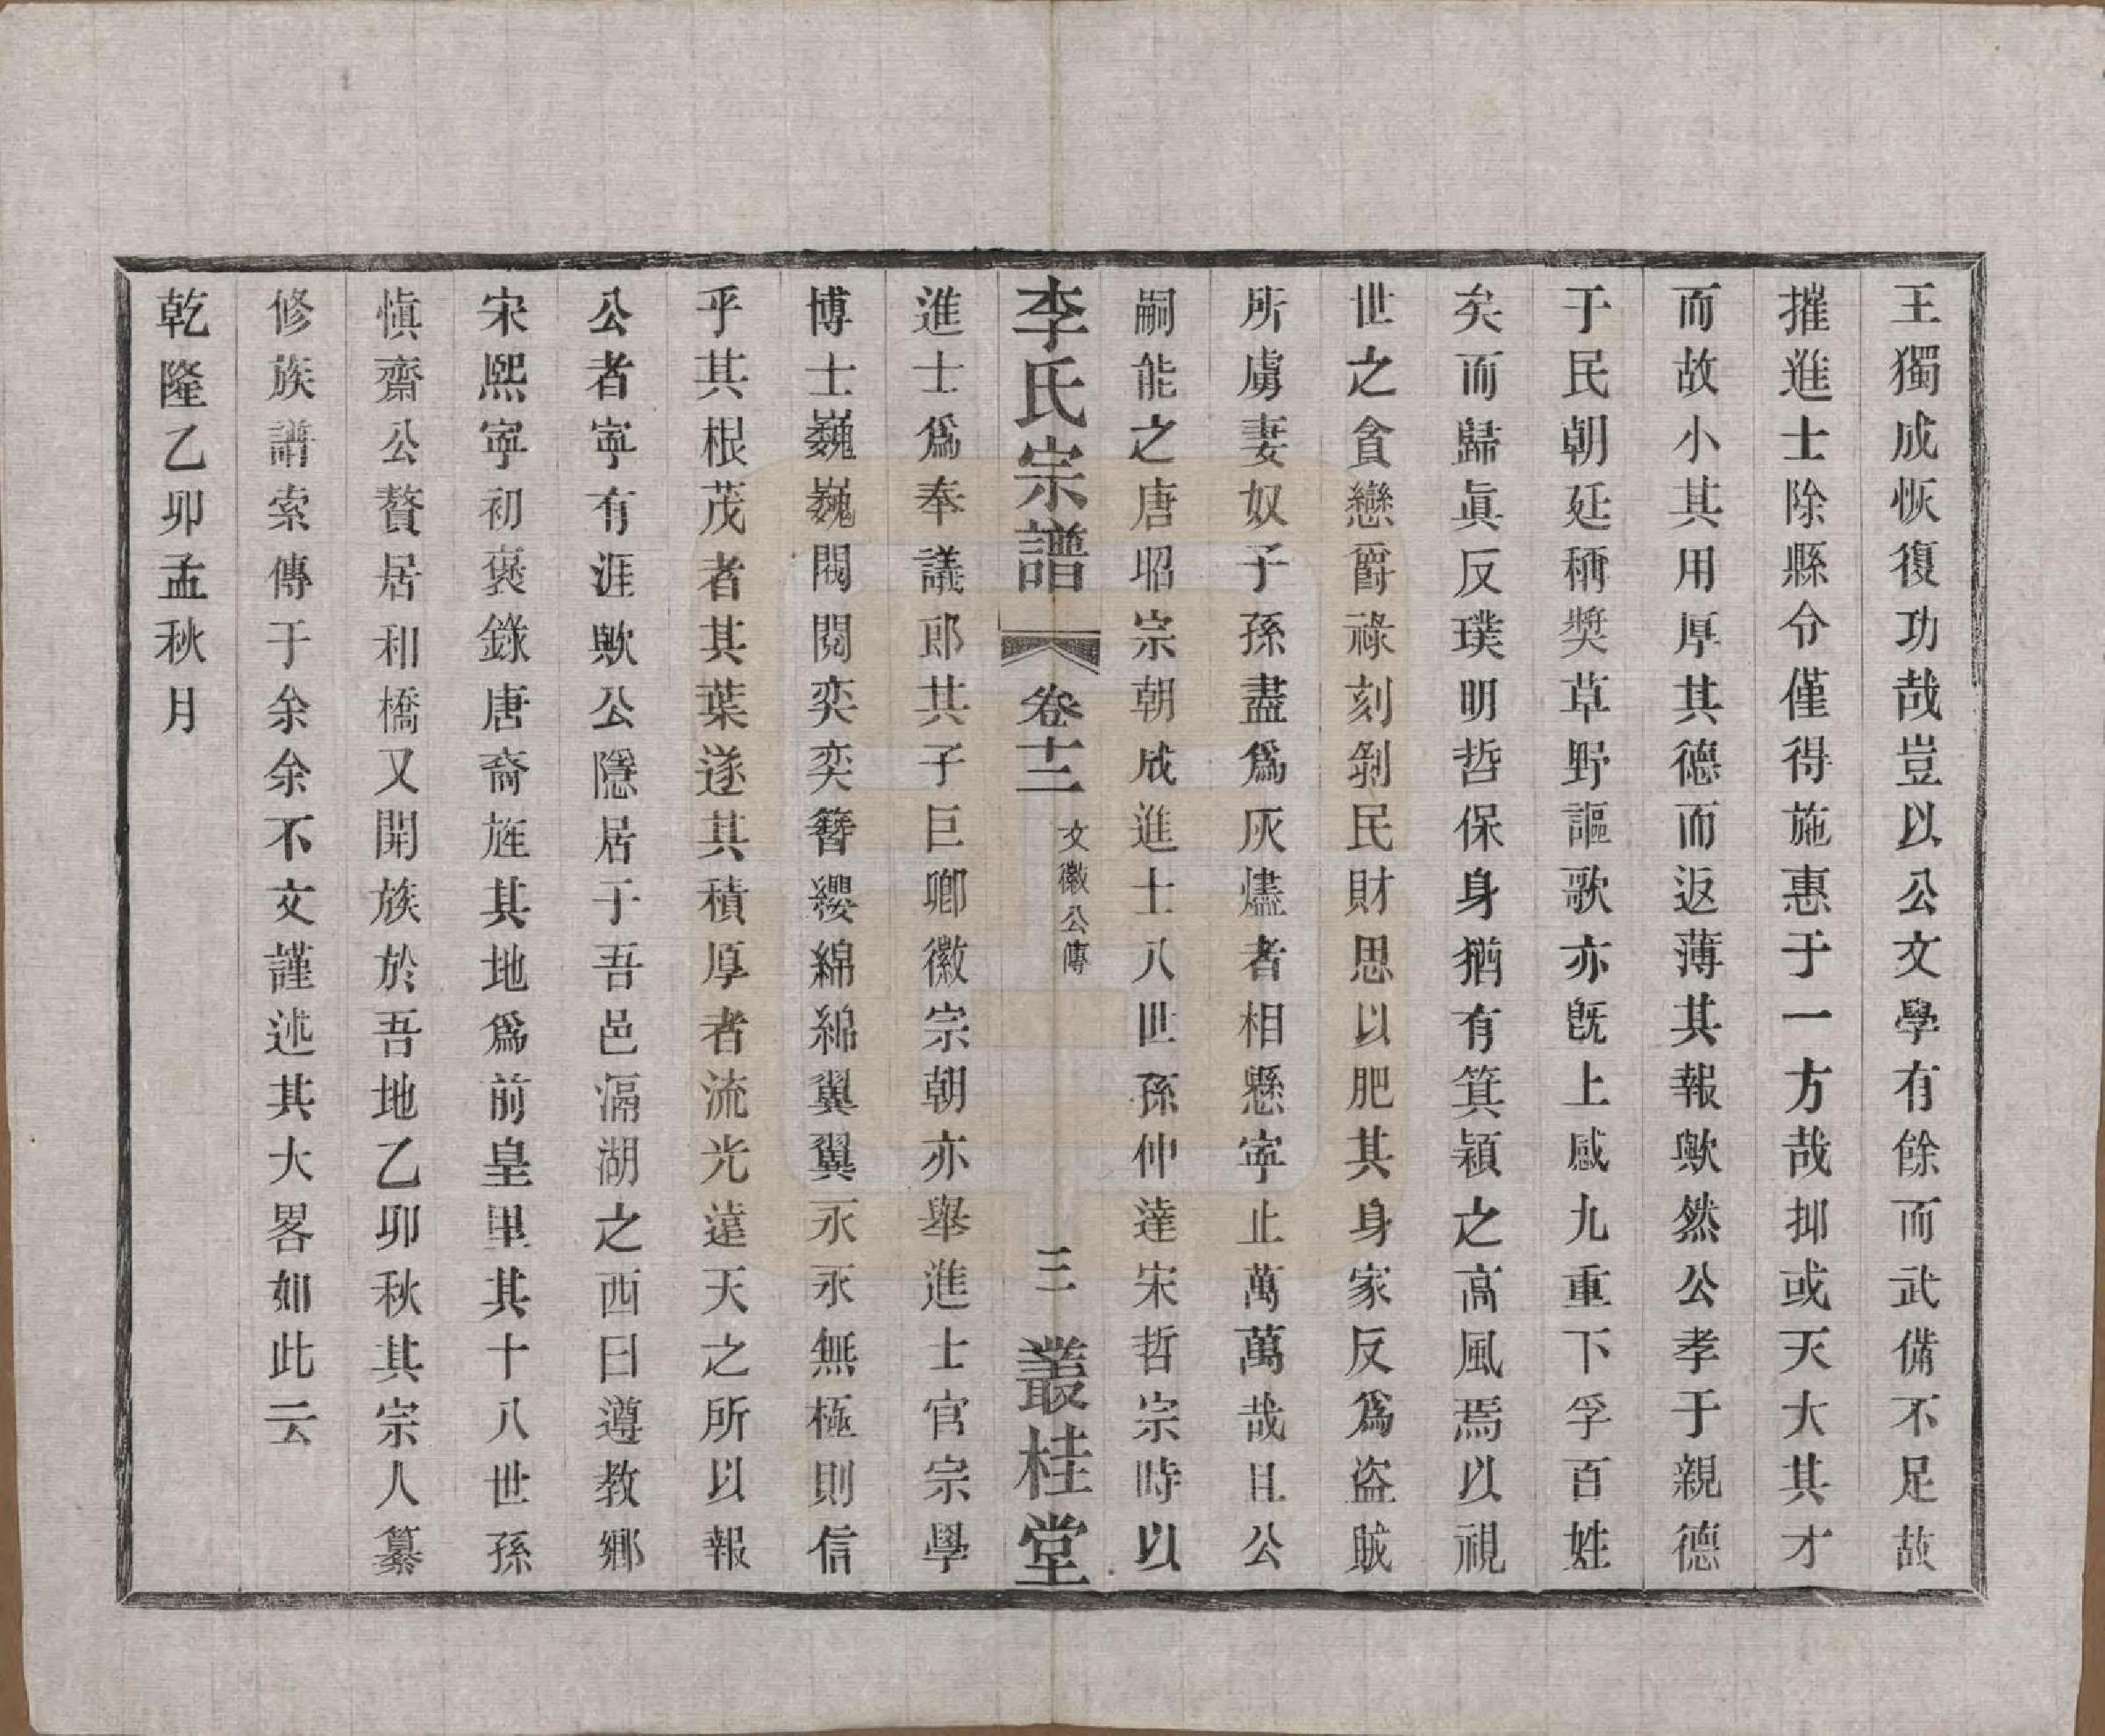 王獨成恢復功哉豈以公文學有餘而武備不足故
摧進士除縣令僅得施惠于一方哉抑或天大其才
而故小其用厚其德而返薄其報歟然公孝于親德
于民朝廷稱奬草野謳歌亦旣上感九重下孚百姓
矣而歸眞反璞明哲保身猶有箕穎之高風焉以視
世之貪戀爵祿刻剝民財思以肥其身家反爲盜賊
所虜妻奴子孫盡爲灰燼者相懸寧止萬萬哉且公
嗣能之唐昭宗朝成進士八世孫仲達宋哲宗時以
李氏宗譜 卷十二 文徽公傳 三 叢桂堂
進士爲奉議郎其子巨卿徽宗朝亦舉進士官宗學
博士巍巍閥閱奕奕簪纓綿綿翼翼永永無極則信
乎其根茂者其葉遂其積厚者流光遠天之所以報
公者寧有涯歟公隱居于吾邑滆湖之西曰遵教鄉
宋熙寧初褒錄唐裔旌其地爲前皇里其十八世孫
愼齋公贅居和橋又開族於吾地乙卯秋其宗人纂
修族譜索傳于余余不文謹述其大畧如此云
乾隆乙卯孟秋月